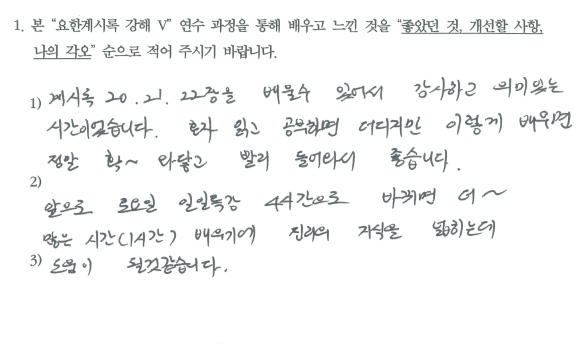 1. 본 "요한계시록 강해 V" 연수 과정을 통해 배우고 느낀 것을 "좋았던 것, 개선할 사항,
나의 각오" 순으로 적어 주시기 바랍니다.
1) 계시록 20. 21. 22장을 배울수 있어서 감사하고 의미있는
시간이었습니다. 혼자 읽고 공부하면 더디지만 이렇게 배우면
정말 확~ 와닿고 빨리 들어와서 좋습니다.
2)
앞으로 토요일 일일특강 4시간으로 바뀌면 더~
많은 시간(1시간) 배우기에 진리의 지식을 넓히는데
3) 도움이 될것같습니다.